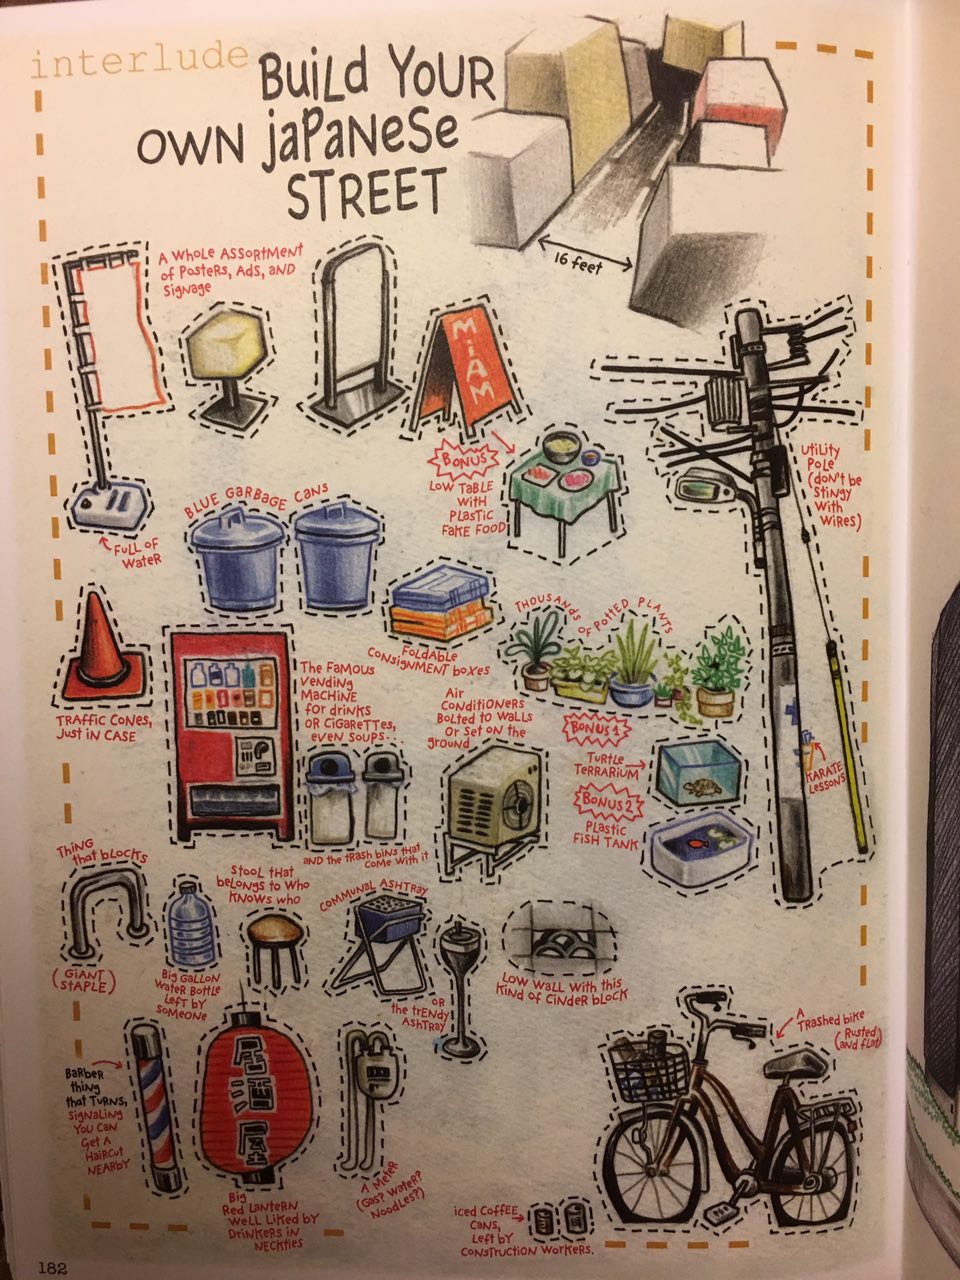 interlude
BUILD YOUR
OWN JAPANESE
STREET
16 feet
A WHOLE ASSORTMENT
OF POSTERS, ADS, AND
SIGNAGE
MIAM
FULL OF
WATER
BLUE GARBAGE CANS
BONUS
LOW TABLE
WITH
PLASTIC
FAKE FOOD
UTILITY
POLE
(DON'T BE
STINGY
WITH
WIRES)
TRAFFIC CONES,
JUST IN CASE
THE FAMOUS
VENDING
MACHINE
FOR DRINKS
OR CIGARETTES,
EVEN SOUPS...
FOLDABLE
CONSIGNMENT BOXES
THOUSANDS
OF POTTED PLANTS
AIR
CONDITIONERS
BOLTED TO WALLS
OR SET ON THE
GROUND
BONUS 1
TURTLE
TERRARIUM
BONUS 2
PLASTIC
FISH TANK
KARATE
LESSONS
AND THE TRASH BINS THAT
COME WITH IT
THING
THAT BLOCKS
(GIANT
STAPLE)
BIG GALLON
WATER BOTTLE
LEFT BY
SOMEONE
STOOL THAT
BELONGS TO WHO
KNOWS WHO
COMMUNAL ASHTRAY
OR
THE TRENDY
ASHTRAY
LOW WALL WITH THIS
KIND OF CINDER BLOCK
A
TRASHED BIKE
(RUSTED
AND FLAT)
BARBER
THING
THAT TURNS,
SIGNALING
YOU CAN
GET A
HAIRCUT
NEARBY
居酒屋
BIG
RED LANTERN
WELL LIKED BY
DRINKERS IN
NECKTIES
A METER
(GAS? WATER?
NOODLES?)
ICED COFFEE
CANS,
LEFT BY
CONSTRUCTION WORKERS.
182